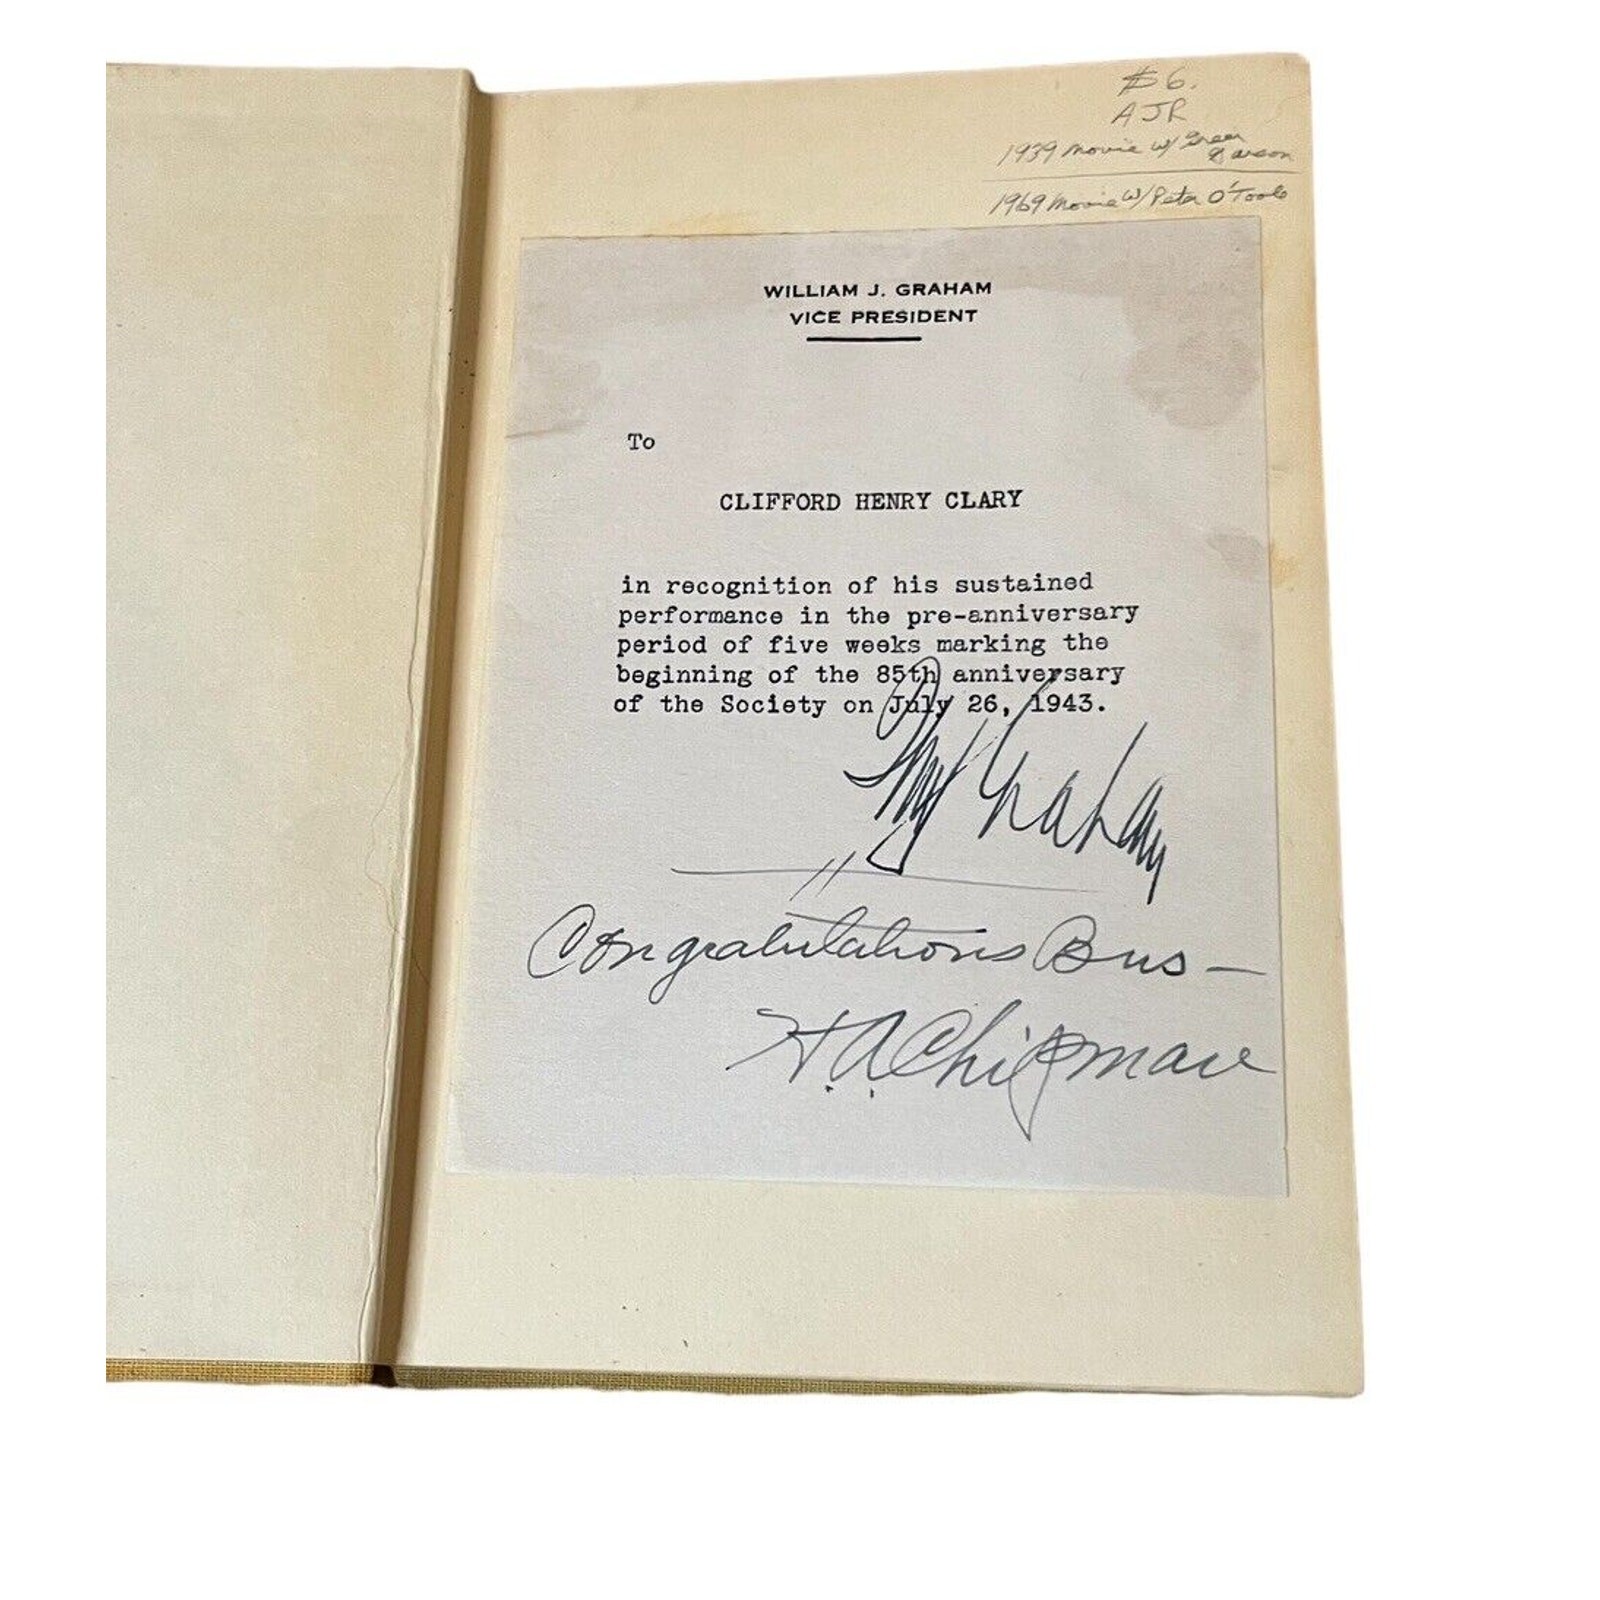 $6.
AJR
1939 Movie w/ Greer
Garson
1969 Movie w/ Peter O'Toole
WILLIAM J. GRAHAM
VICE PRESIDENT
To
CLIFFORD HENRY CLARY
in recognition of his sustained
performance in the pre-anniversary
period of five weeks marking the
beginning of the 85th anniversary
of the Society on July 26, 1943.
Wm J Graham
Congratulations Bus —
H. A. Chipman